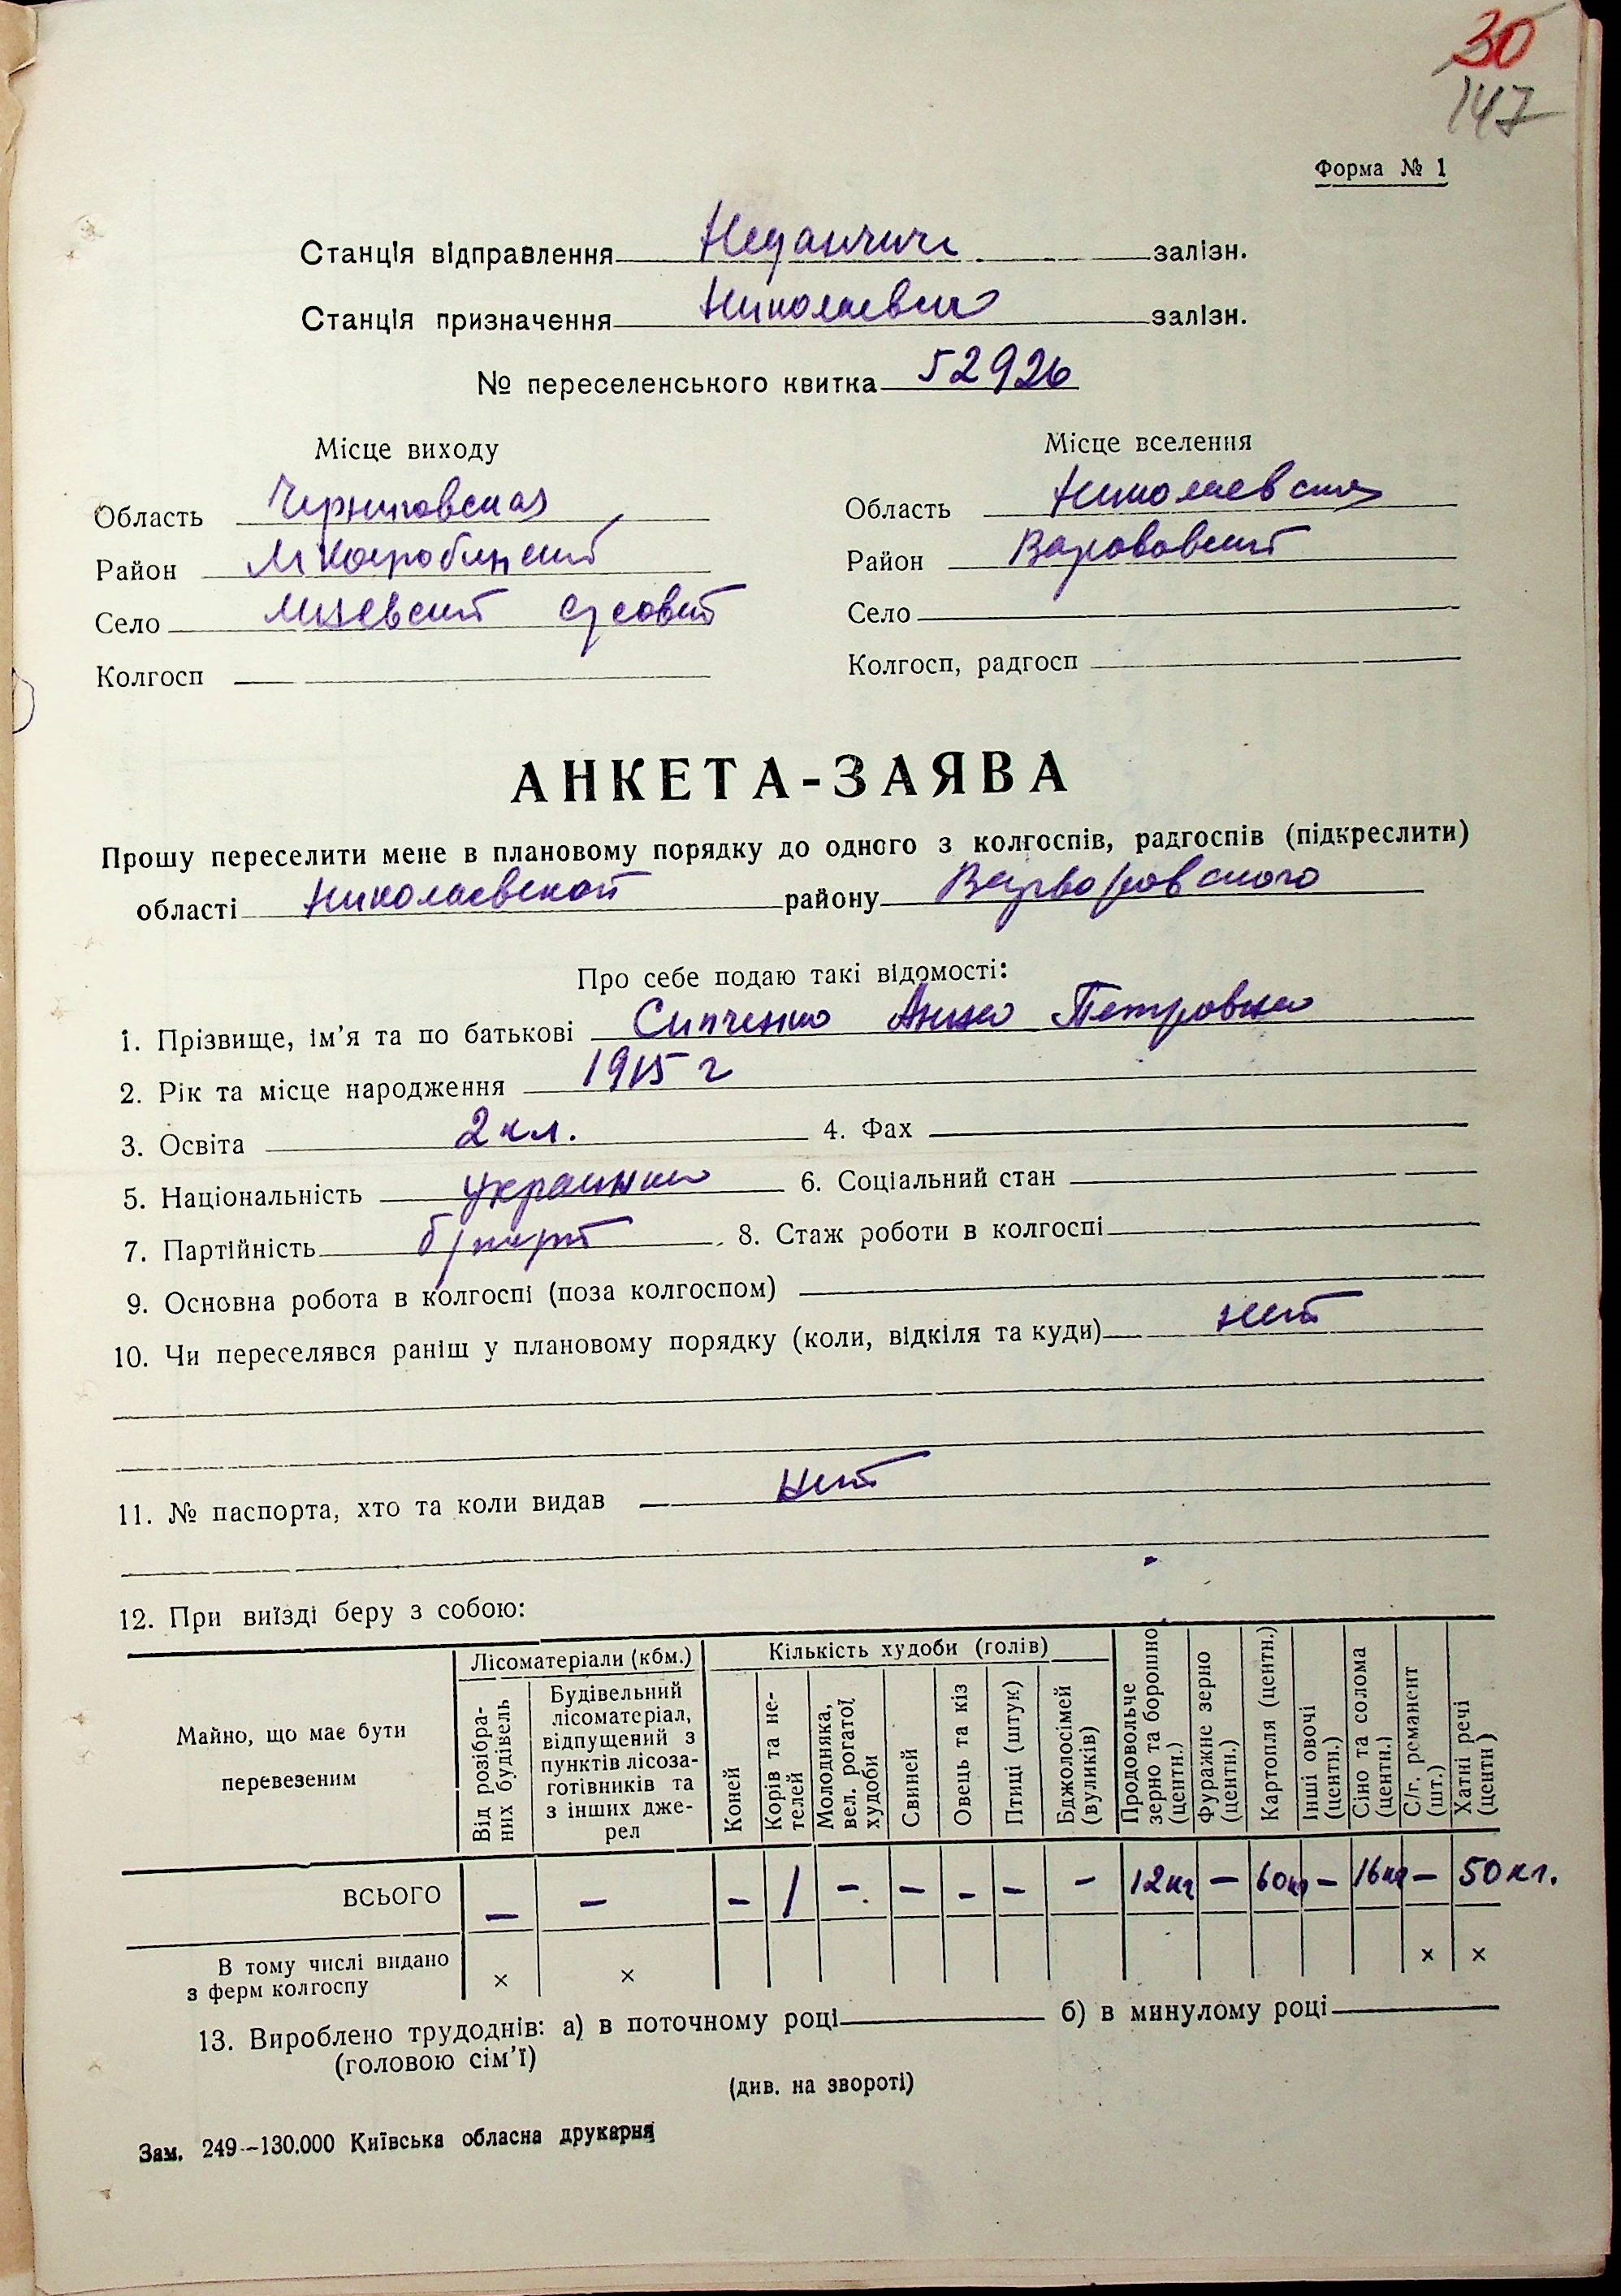 30
147
Форма № 1
Станція відправлення Неданчичи залізн.
Станція призначення Николаевка залізн.
№ переселенського квитка 52926
Місце виходу Місце вселення
Область Черниговская Область Николаевская
Район М Коцюбинский Район
Село с/совет Село
Колгосп Колгосп, радгосп
АНКЕТА-ЗАЯВА
Прошу переселити мене в плановому порядку до одного з колгоспів, радгоспів (підкреслити)
області Николаевской району Варваровского
Про себе подаю такі відомості:
1. Прізвище, ім'я та по батькові Анна Петровна
2. Рік та місце народження 1915 г
3. Освіта 2 кл. 4. Фах
5. Національність украинка 6. Соціальний стан
7. Партійність б/парт 8. Стаж роботи в колгоспі
9. Основна робота в колгоспі (поза колгоспом)
10. Чи переселявся раніш у плановому порядку (коли, відкіля та куди) нет
11. № паспорта, хто та коли видав нет
12. При виїзді беру з собою:
Майно, що має бути перевезеним
Лісоматеріали (кбм.)
Від розібраних будівель
Будівельний
лісоматеріал,
відпущений з
пунктів лісоза-
готівників та
з інших дже-
рел
Кількість худоби (голів)
Коней
Корів та не-
телей
Молодняка,
вел. рогатої
худоби
Свиней
Овець та кіз
Птиці (штук)
Бджолосімей
(вуликів)
Продовольче
зерно та борошно
(центн.)
Фуражне зерно
(центн.)
Картопля (центн.)
Інші овочі
(центн.)
Сіно та солома
(центн.)
С/г. реманент
(шт.)
Хатні речі
(центн)
ВСЬОГО – – – 1 – – – – – 12кг – 60кг – 16кг – 50кг.
В тому числі видано
з ферм колгоспу × × × ×
13. Вироблено трудоднів: а) в поточному році б) в минулому році
(головою сім'ї)
(див. на звороті)
Зам. 249–130.000 Київська обласна друкарня